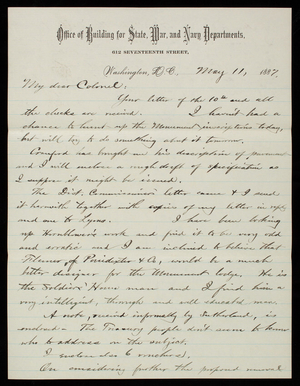 Office of Building for State, War, and Navy Departments.
612 SEVENTEENTH STREET,
Washington, D.C., May 11, 1887.
My dear Colonel:
Your letter of the 10th and all
the checks are received. I haven't had a
chance to hunt up the Monument inscriptions today,
but will try to do something about it tomorrow.
Crawford has brought me a description of pavement
and I will make a rough draft of specification as
I suppose it might be issued.
The Dist. Commissioner's letter came & I send
it herewith together with copies of my letter in reply
and one to Lyons. I have been looking
up Hornblower's work and find it to be very odd
and erratic and I am inclined to believe that
of Poindexter & Co. would be a much
better designer for the Monument lodge. He is
the Soldiers' Home man and I find him a
very intelligent, thorough and well educated man.
A note, received informally by Sutherland, is
enclosed. The Treasury people don't seem to know
who to address on the subject.
I enclose also 6 vouchers.
On considering further the proposed removal